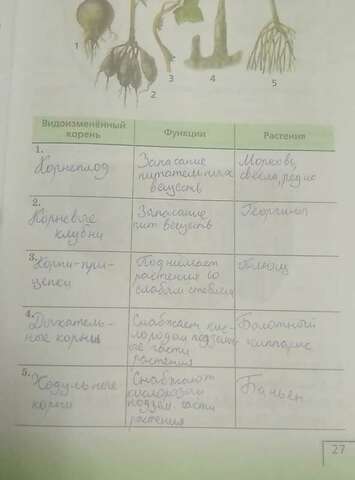 1
2
3
4
5
Видоизменённый корень
Функции
Растения
1.
Корнеплод
Запасание питательных веществ
Морковь, свекла, редис
2.
Корневые клубни
Запасание пит веществ
Георгины
3.
Корни-прицепки
Поднимает растения со слабым стеблем
Плющ
4.
Дыхатель-
ные корни
Снабжает кис-
лородом подзем
ые части
растения
Болотный
кипарис
5.
Ходульные
корни
Снабжают
кислородом
подзем части
растения
Баньян
27